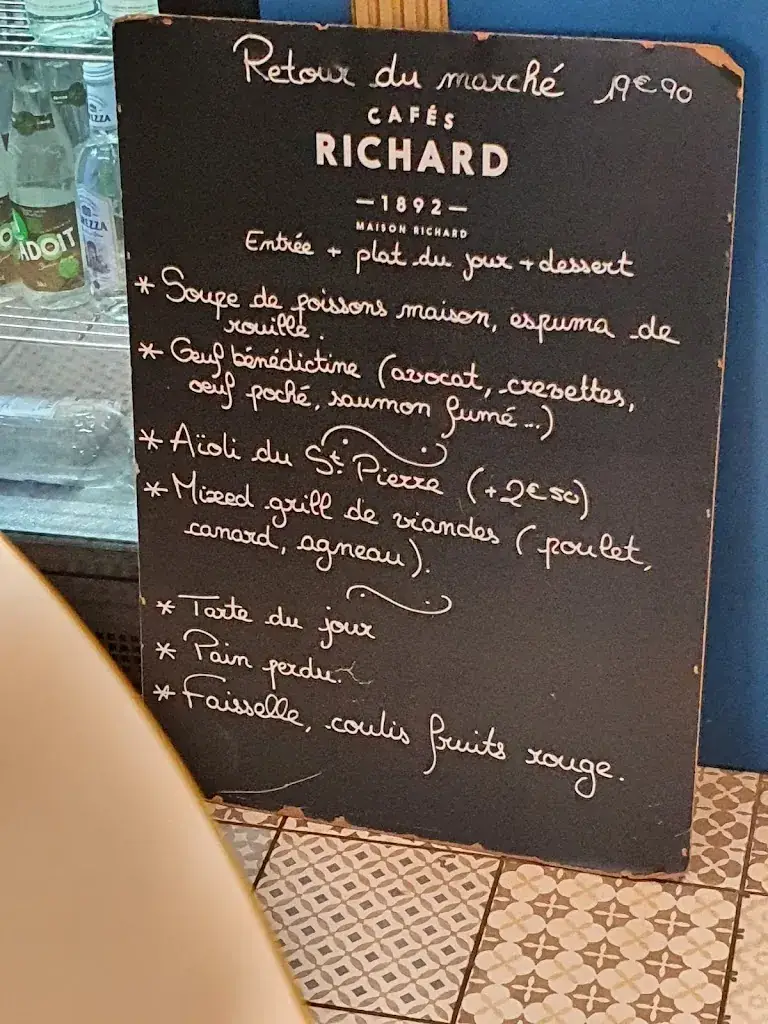 Retour du marché 19€90
CAFÉS
RICHARD
—1892—
MAISON RICHARD
Entrée + plat du jour + dessert
* Soupe de poissons maison, espuma de
rouille.
* Oeuf bénédictine (avocat, crevettes,
oeuf poché, saumon fumé...)
* Aïoli du St Pierre (+2€50)
* Mixed grill de viandes (poulet,
canard, agneau).
* Tarte du jour
* Pain perdu.
* Faisselle, coulis fruits rouge.
ADOIT